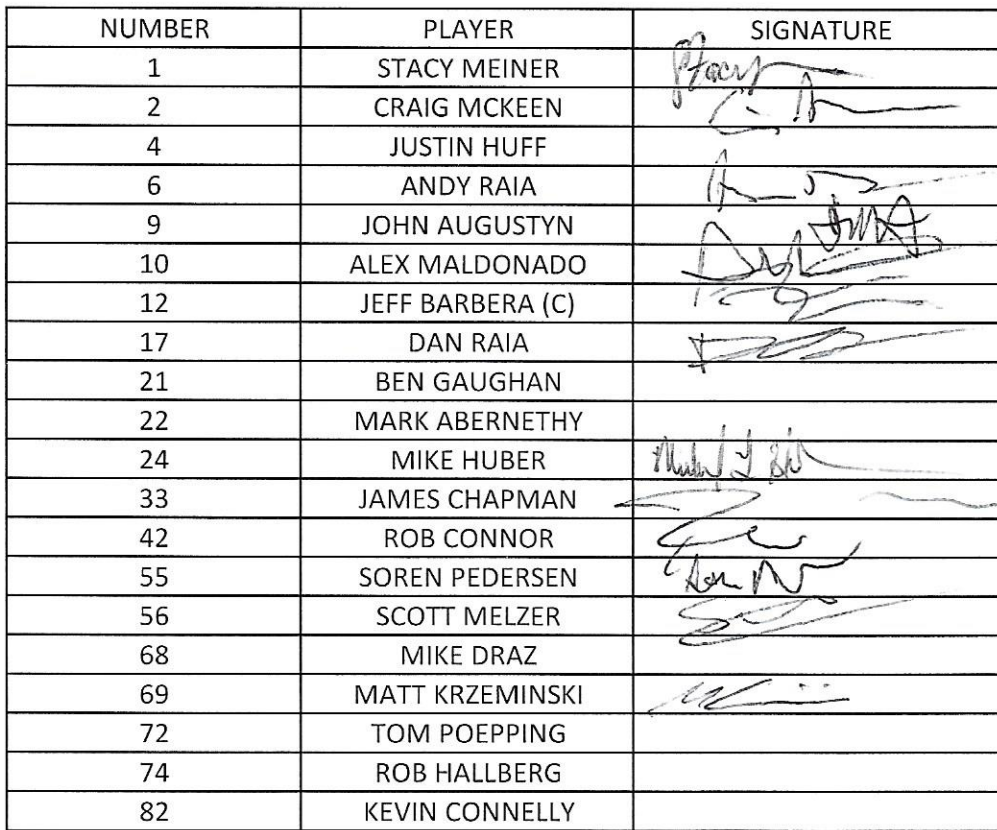 NUMBER PLAYER SIGNATURE
1 STACY MEINER Stacy
2 CRAIG MCKEEN
4 JUSTIN HUFF
6 ANDY RAIA
9 JOHN AUGUSTYN
10 ALEX MALDONADO
12 JEFF BARBERA (C)
17 DAN RAIA
21 BEN GAUGHAN
22 MARK ABERNETHY
24 MIKE HUBER
33 JAMES CHAPMAN
42 ROB CONNOR
55 SOREN PEDERSEN
56 SCOTT MELZER
68 MIKE DRAZ
69 MATT KRZEMINSKI
72 TOM POEPPING
74 ROB HALLBERG
82 KEVIN CONNELLY